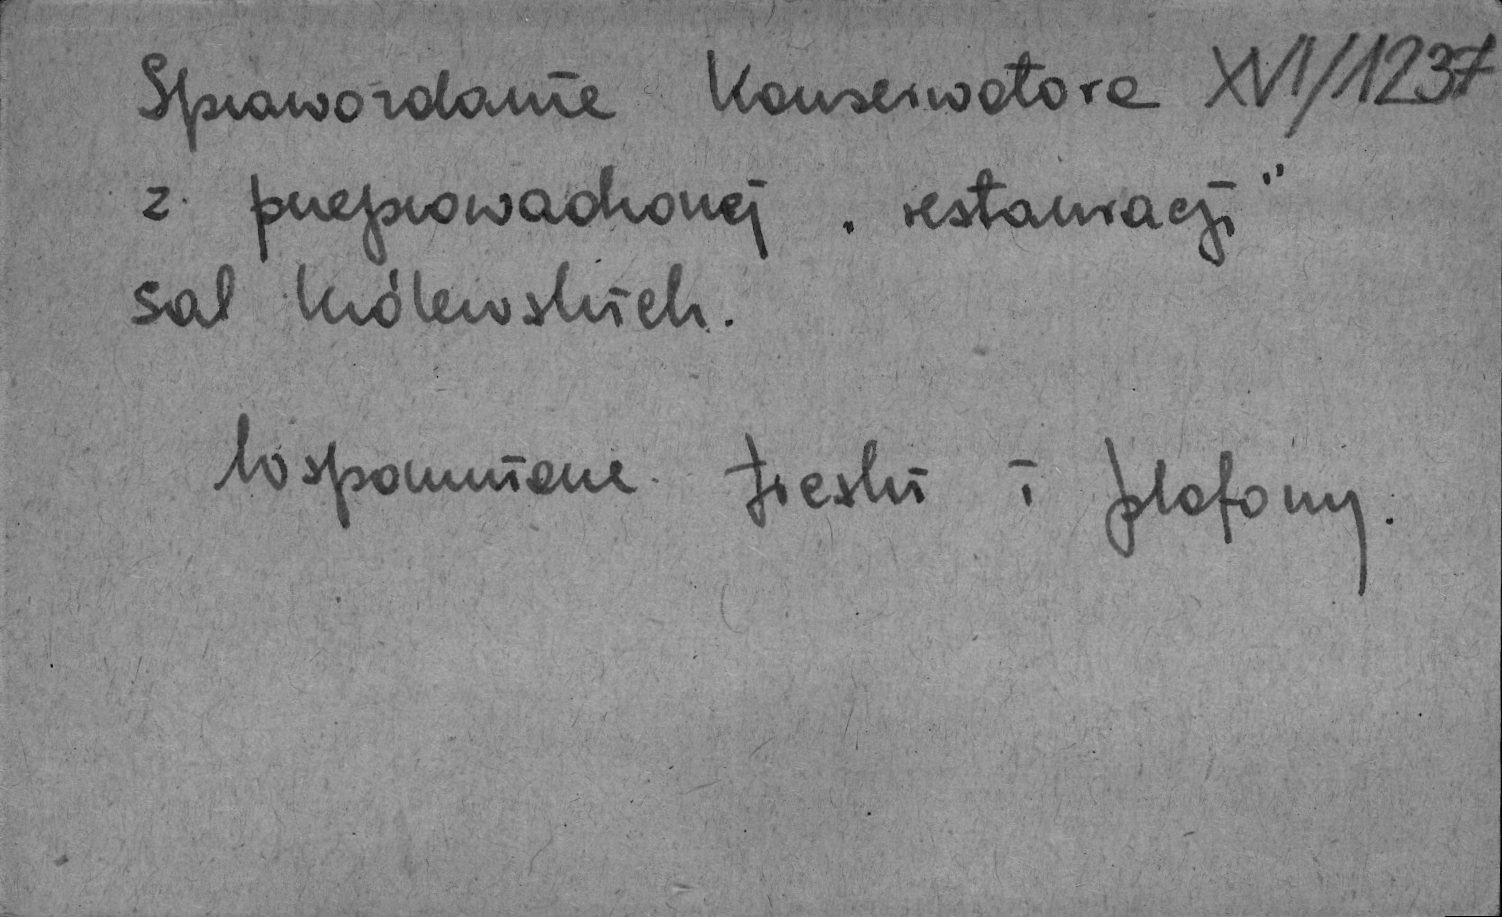 Sprawozdanie Konserwatora XVI/1237
z przeprowadzonej „restauracji”
sal królewskich.
Wspomniane freski i plafony.